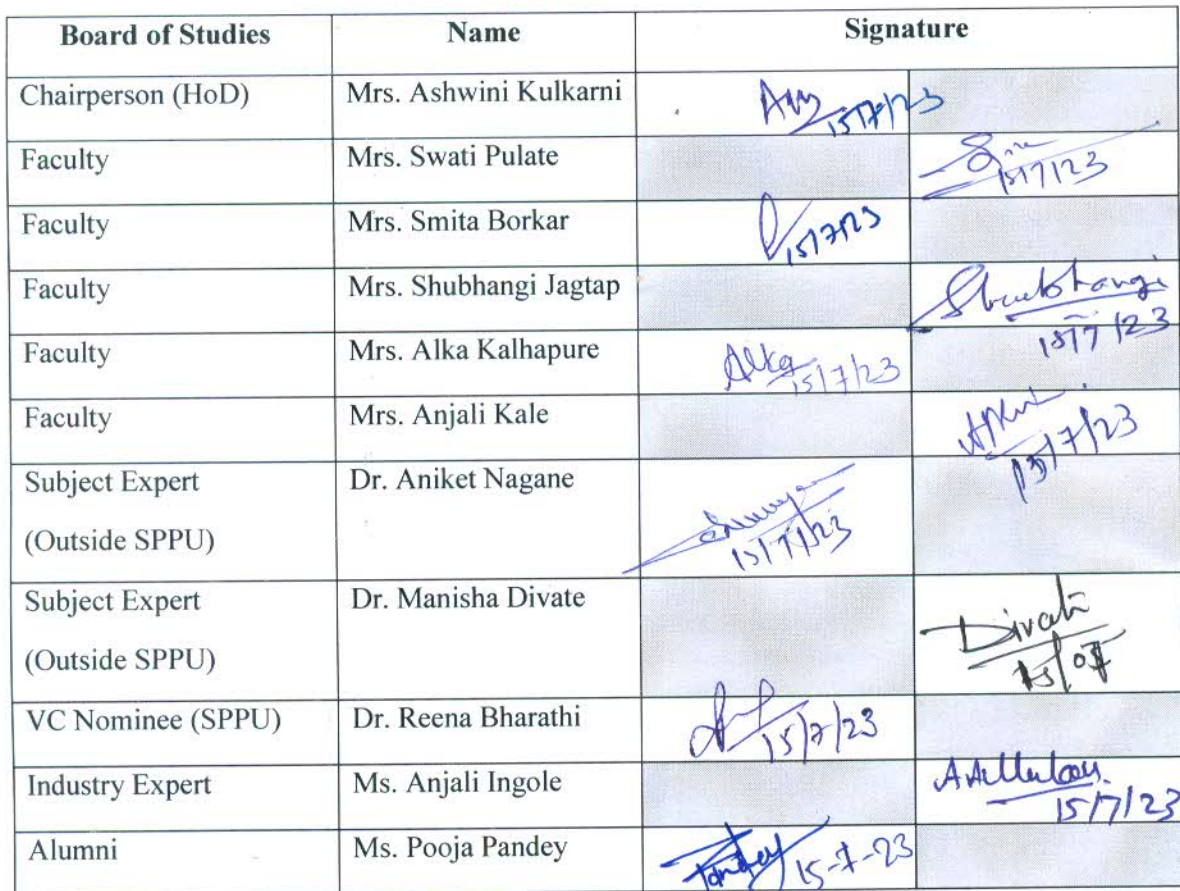 Board of Studies Name Signature
Chairperson (HoD) Mrs. Ashwini Kulkarni 15/7/23
Faculty Mrs. Swati Pulate 15/7/23
Faculty Mrs. Smita Borkar 15/7/23
Faculty Mrs. Shubhangi Jagtap Shubhangi
15/7/23
Faculty Mrs. Alka Kalhapure Alka 15/7/23
Faculty Mrs. Anjali Kale
15/7/23
Subject Expert Dr. Aniket Nagane
(Outside SPPU) 15/7/23
Subject Expert Dr. Manisha Divate Divate
(Outside SPPU) 15/07
VC Nominee (SPPU) Dr. Reena Bharathi 15/7/23
Industry Expert Ms. Anjali Ingole
15/7/23
Alumni Ms. Pooja Pandey Pandey 15-7-23